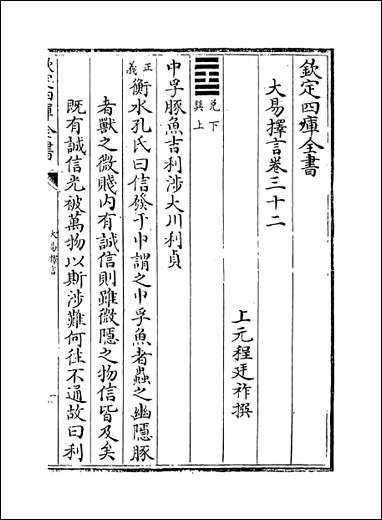 欽定四庫全書
大易擇言卷三十二
上元程廷祚撰
兌下
巽上
中孚豚魚吉利涉大川利貞
正義
衡水孔氏曰信發于中謂之中孚魚者蟲之幽隱豚
者獸之微賤内有誠信則雖微隱之物信皆及矣
既有誠信光被萬物以斯涉難何往不通故曰利
欽定四庫全書
大易擇言
一